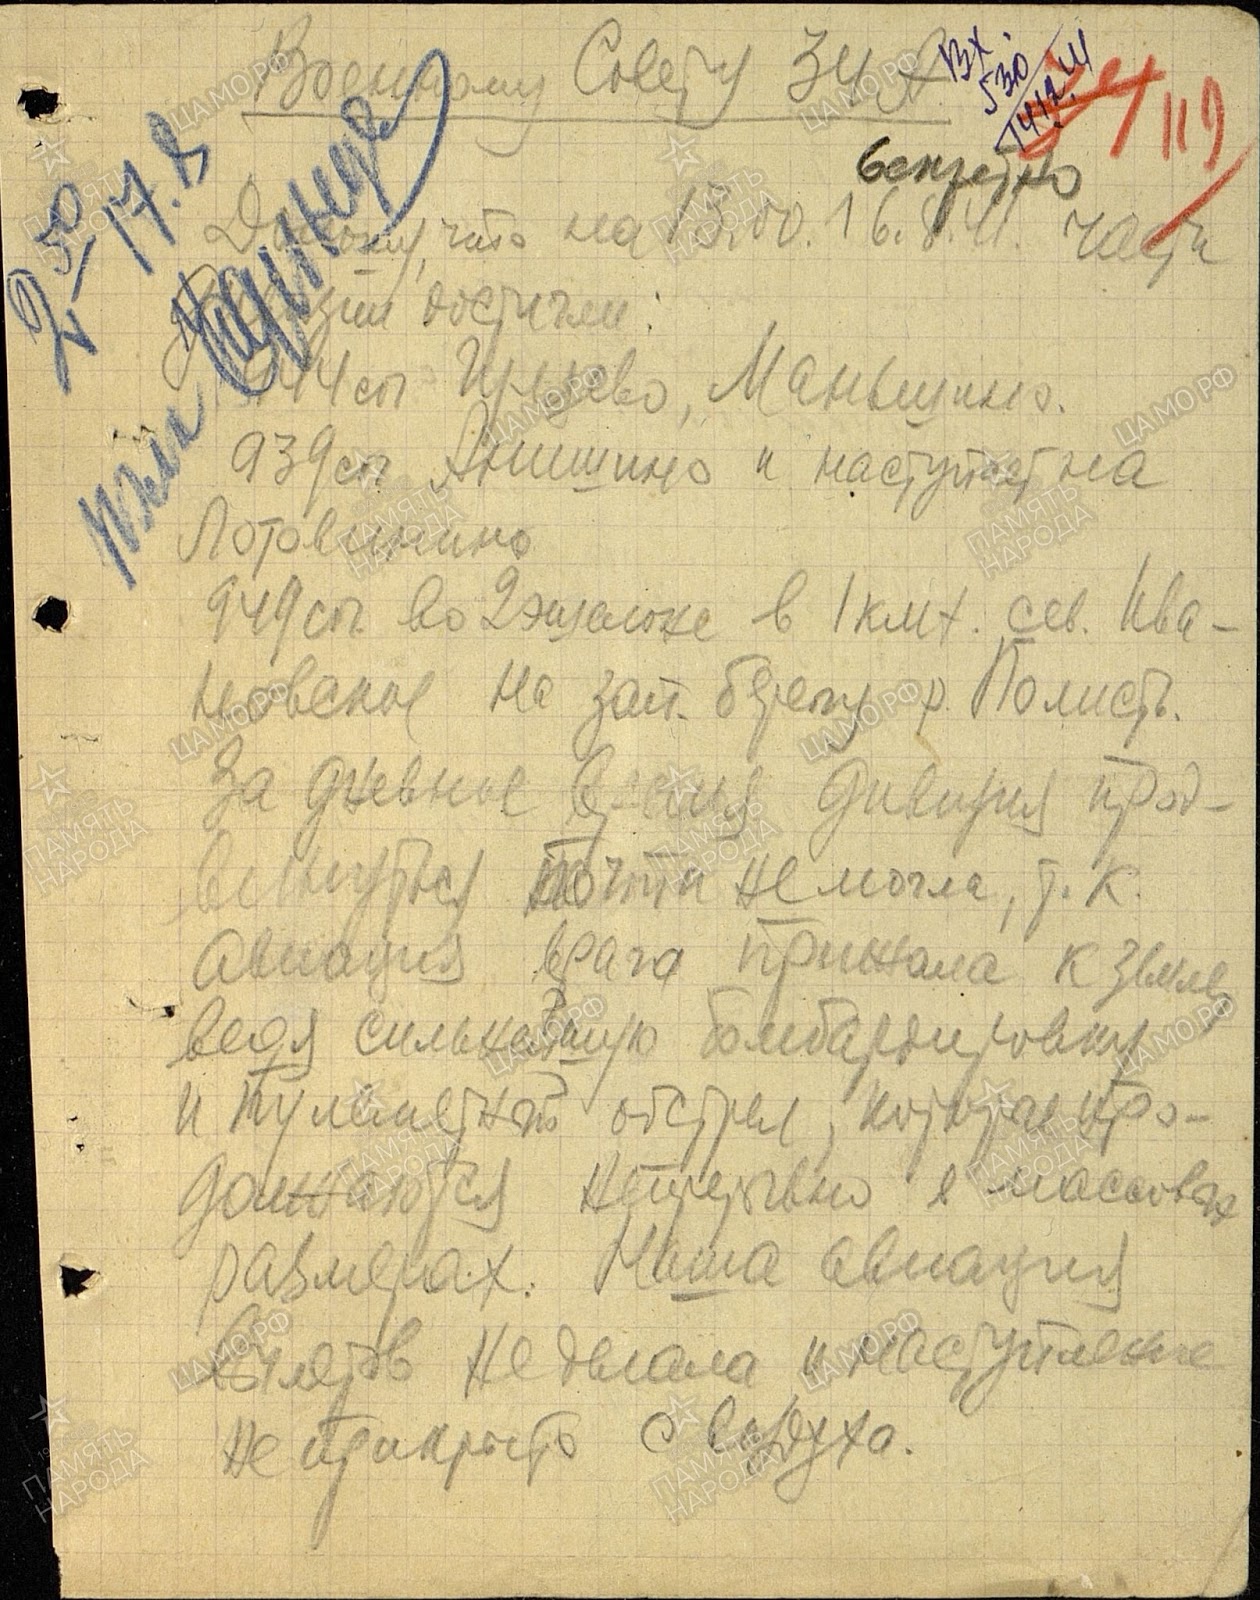 Военному Совету 34 А
Вх
530
119
секретно
2 50
17.8
Доношу, что на 13.00. 16.8.41. части
дивизии достигли:
944 сп Гущево, Маньшино.
939 сп Анишино и наступает на
949 сп во 2 эшелоне в 1 клм. сев. Ива-
новское на зап. берегу р. Полисть.
За дневное время дивизия прод-
винуться почти не могла, т.к.
авиация врага прижала к земле,
ведя сильнейшую бомбардировку
и пулеметный обстрел, которые про-
должаются непрерывно в массовых
размерах. Наша авиация
вылетов не делала и наступление
не прикрыто с воздуха.
ПАМЯТЬ НАРОДА
ЦАМО.РФ